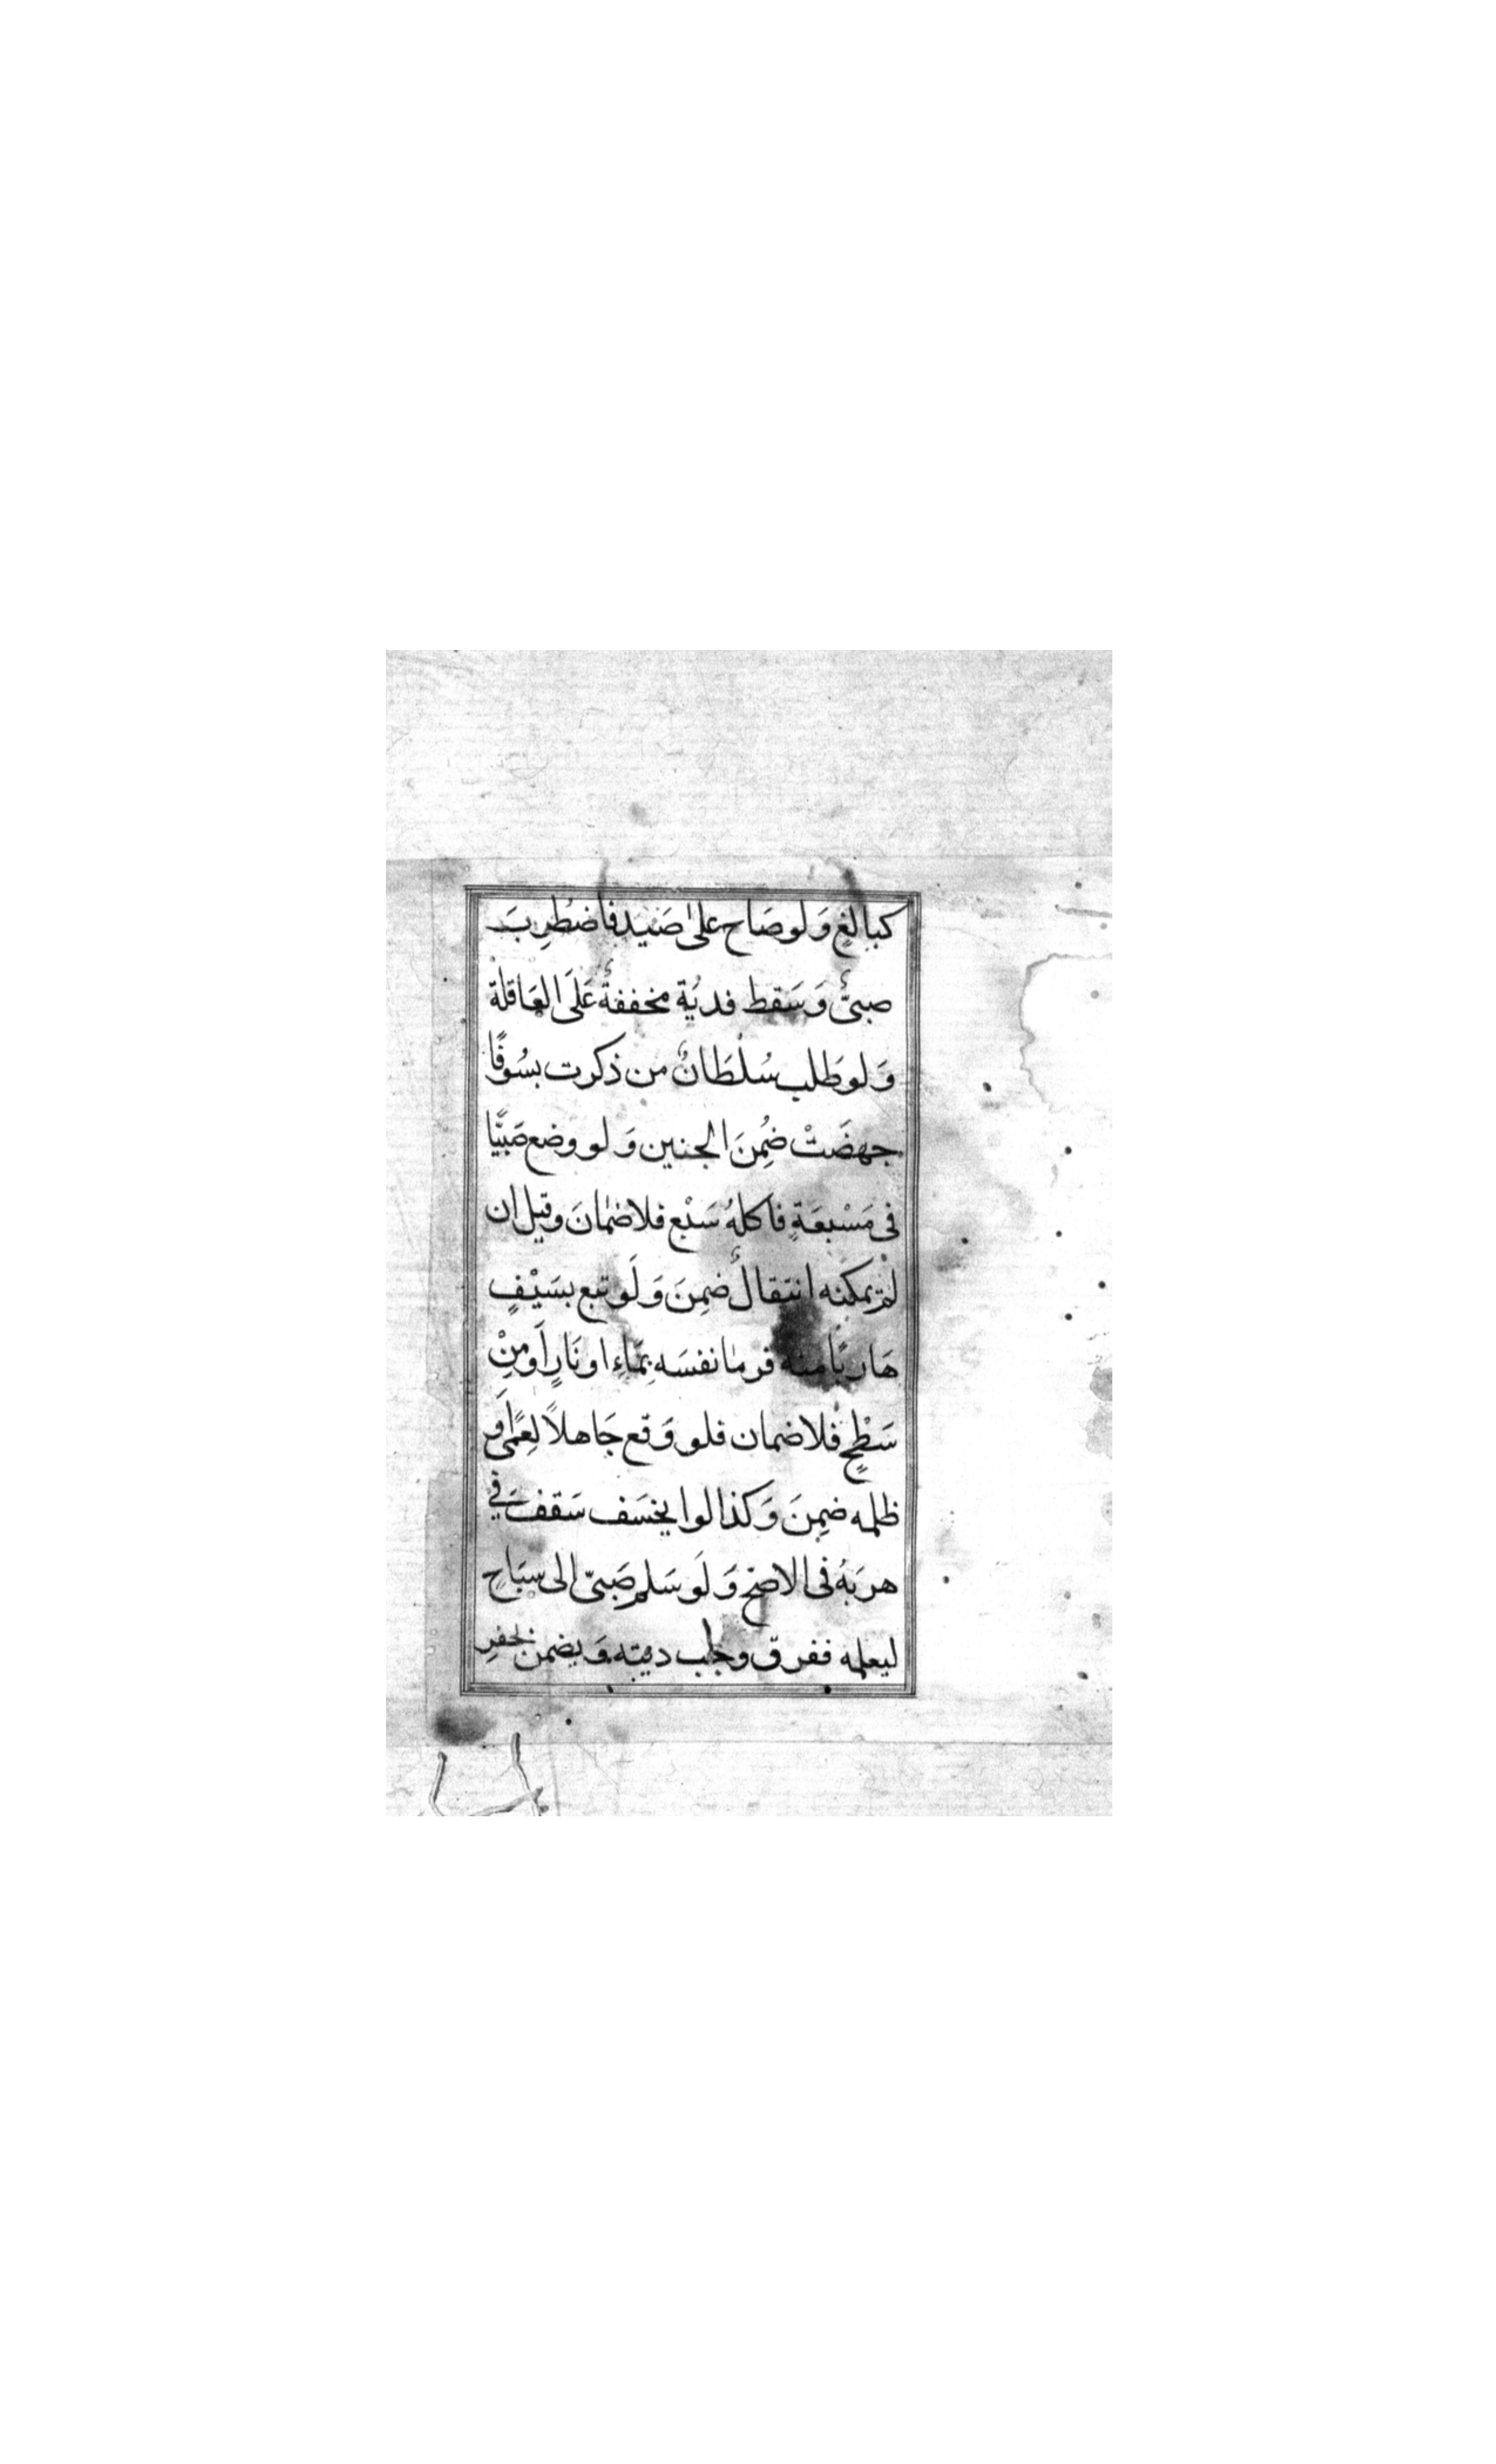 كبالغٍ وَلو صَاح علىٰ صَنيد فاضطرِبَ
صبىٌّ وَسَقط فديَة مخففةٌ عَلَى العَاقلة
وَلو طَلب سُلْطَانٌ من ذكرت بسُوقًا
جهضَتْ ضُمِنَ الجنين وَلو وضع صَبيًّا
فى مَسْبعَةٍ فاكلهُ سَبْع فلاضمانَ وقيل ان
لمْ يمكنه انتقالٌ ضمِنَ وَلَو تبع بسَيْفٍ
هَاربًا منه فرما نفسَه بمَاءٍ او نَارٍ اَو مِنْ
سَطْحٍ فلاضمان فلو وَقع جَاهلاً لِعَمًى اَو
ظلمه ضمِنَ وَكذا لوا يخسَف سَقفَ في
هربَهُ فى الاصَحّ وَلَو سَلم صَبىّ الى سبَاحٍ
ليعلمه ففرق وجب ديته وَيضمن بحفرِ